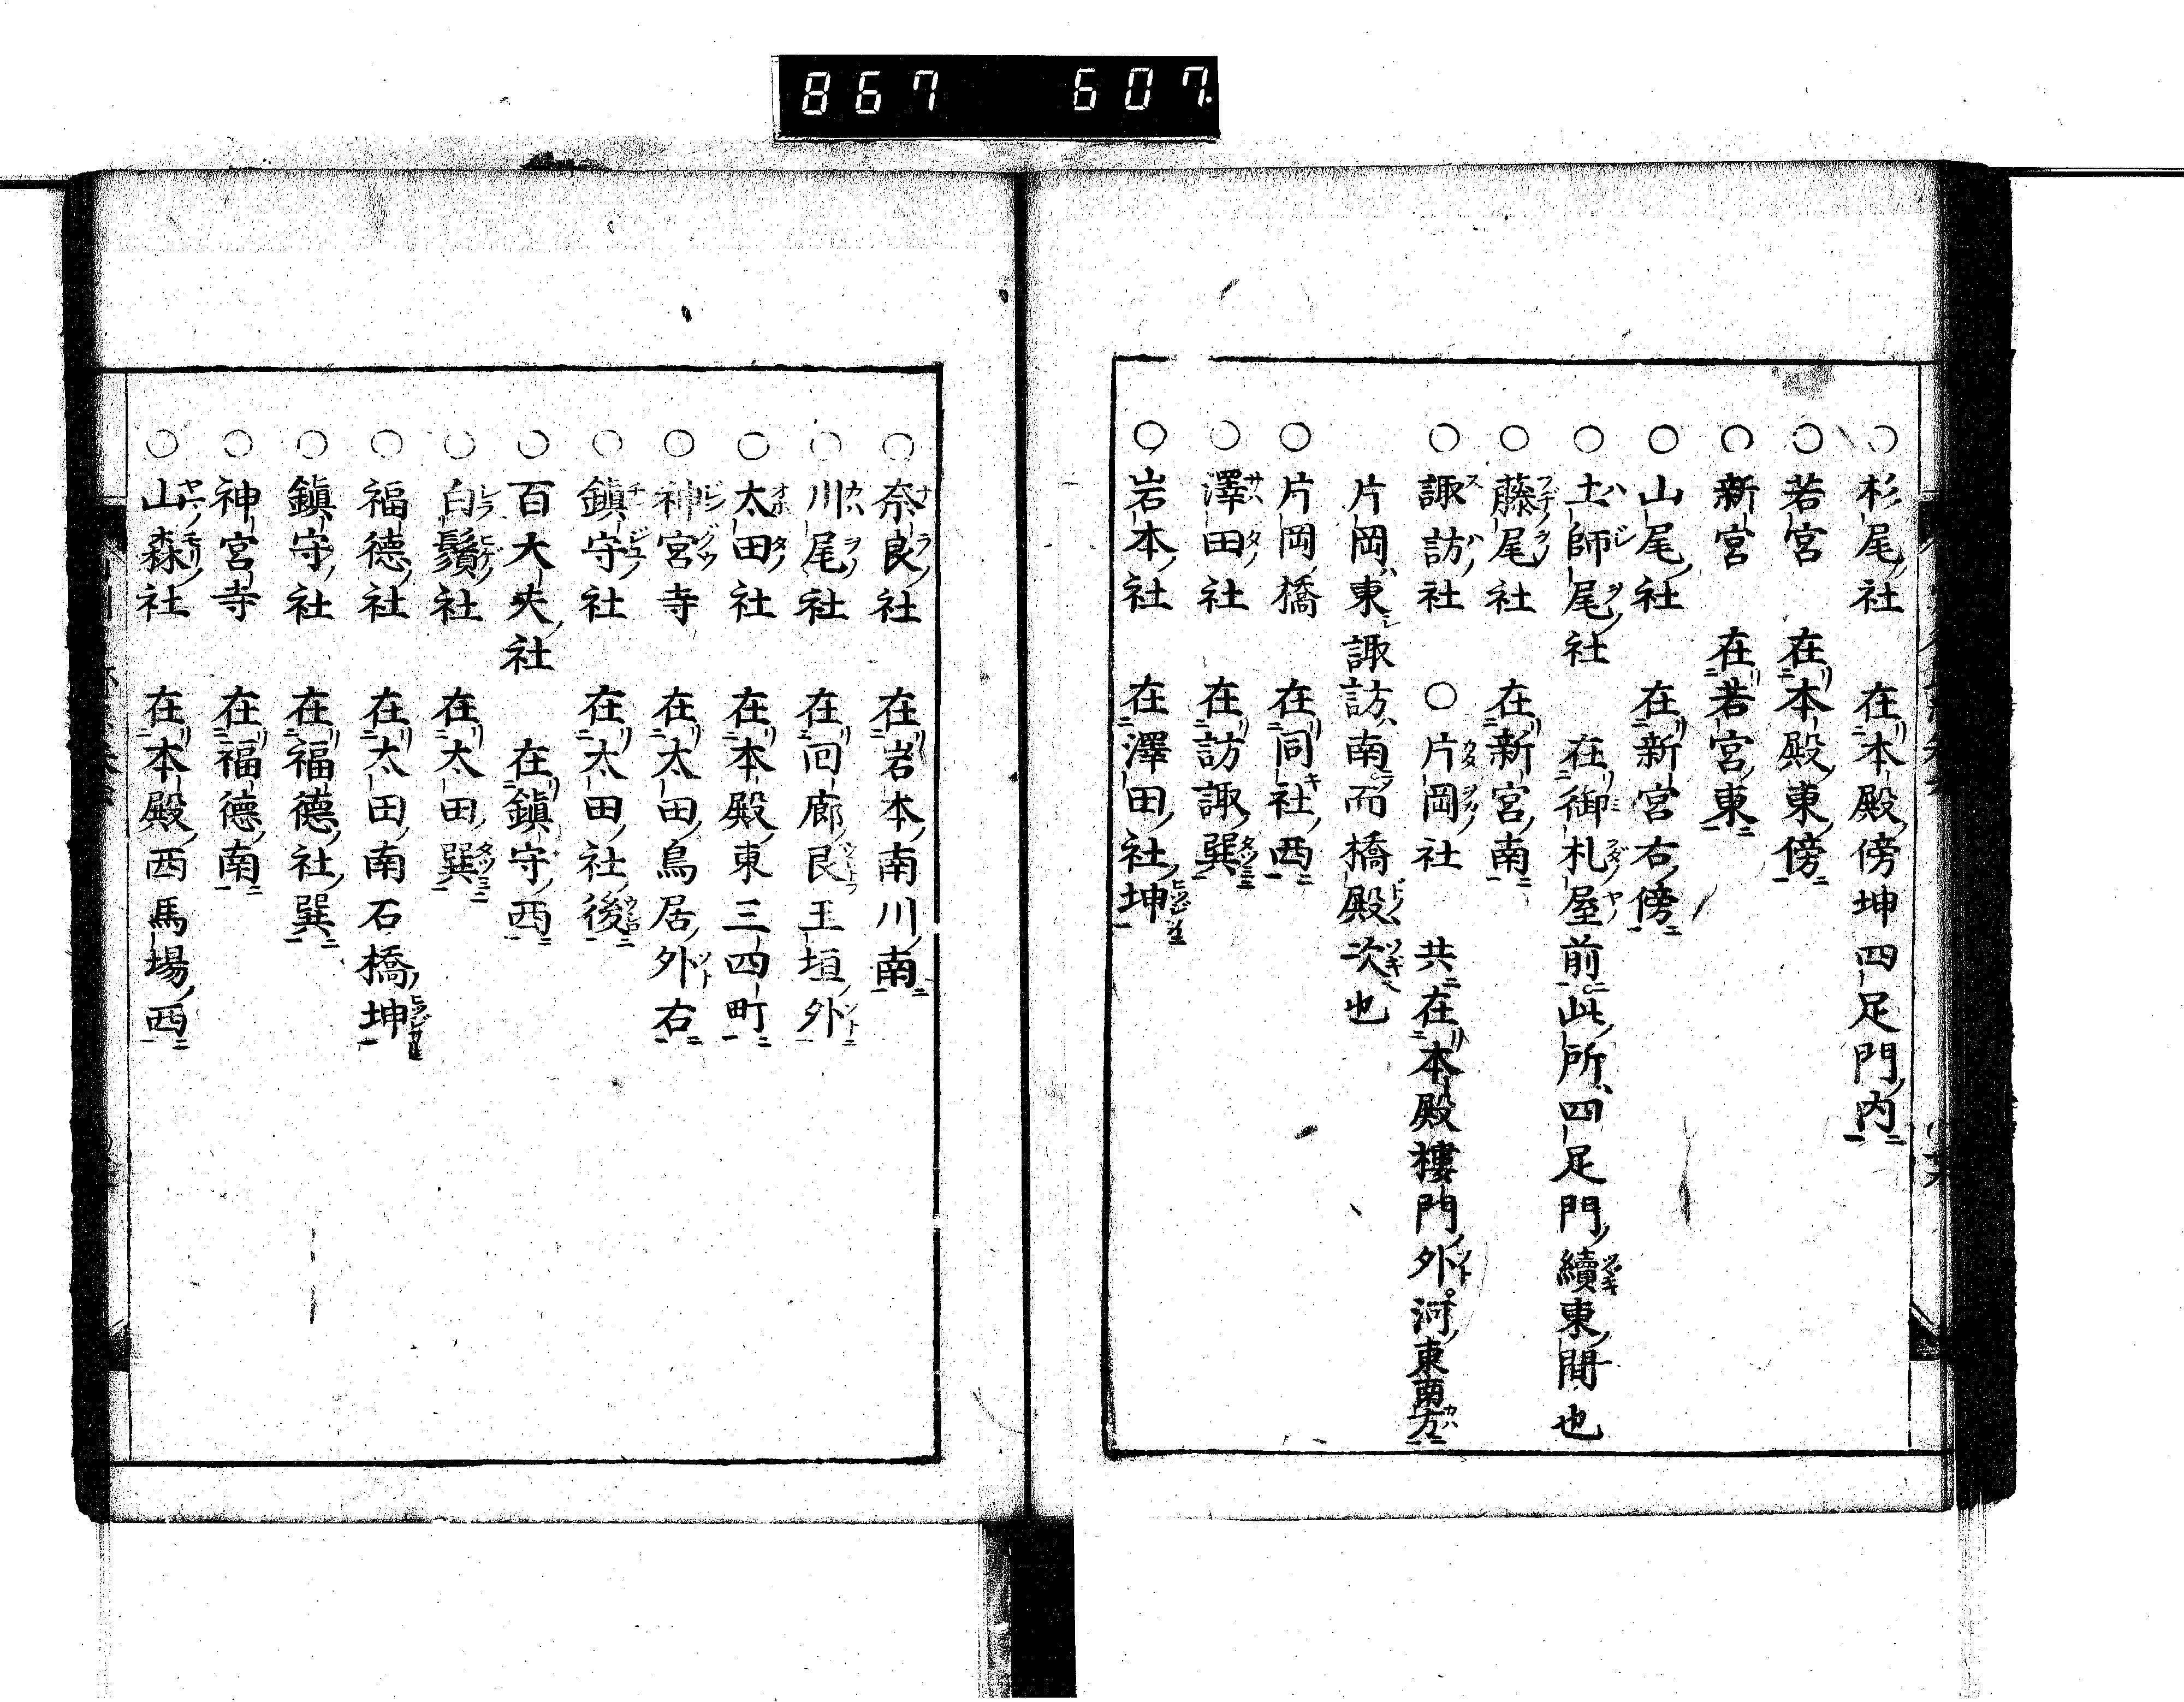 867 607
○杉尾社 在本殿傍坤四足門内
○若宮 在本殿東傍
○新宮 在若宮東
○山尾社 在新宮右傍
○土師尾社 在御札屋前此所四足門續東間也
○藤尾社 在新宮南
○諏訪社 ○片岡社 共在本殿樓門外河東南方
片岡東諏訪南而橋殿次也
○片岡橋 在同社西
○澤田社 在訪諏巽
○岩本社 在澤田社坤
○奈良社 在岩本南川南
○川尾社 在回廊艮玉垣外
○太田社 在本殿東三四町
○神宮寺 在太田鳥居外右
○鎮守社 在太田社後
○百大夫社 在鎮守西
○白鬚社 在太田巽
○福徳社 在太田南石橋坤
○鎮守社 在福徳社巽
○神宮寺 在福徳南
○山森社 在本殿西馬場西